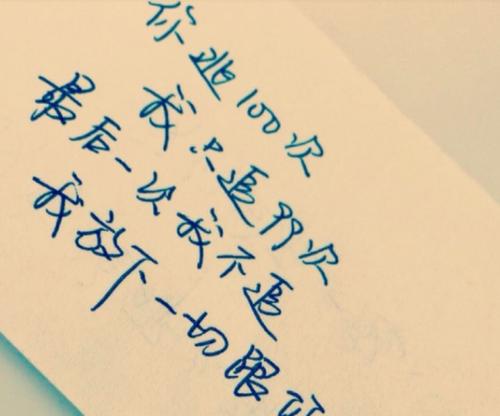 你逃100次
我只追99次
最后一次我不追
我放下一切跟